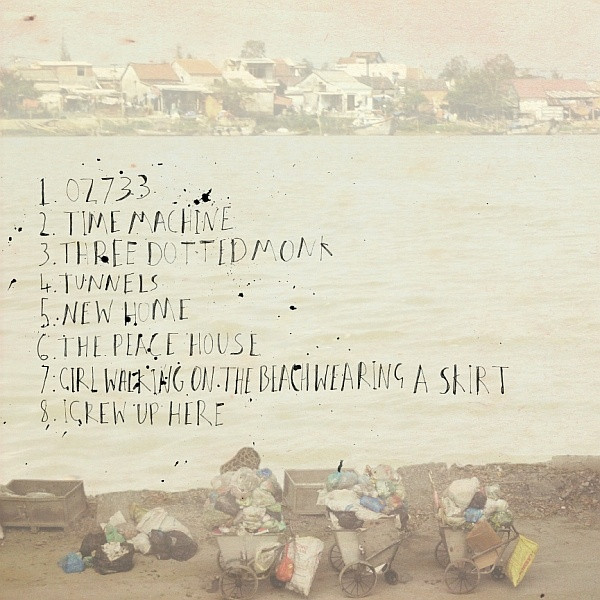 1. OZ733
2. TIME MACHINE
3. THREE DOTTED MONK
4. TUNNELS
5. NEW HOME
6. THE PEACE HOUSE
7. GIRL WALKING ON THE BEACH WEARING A SKIRT
8. I GREW UP HERE